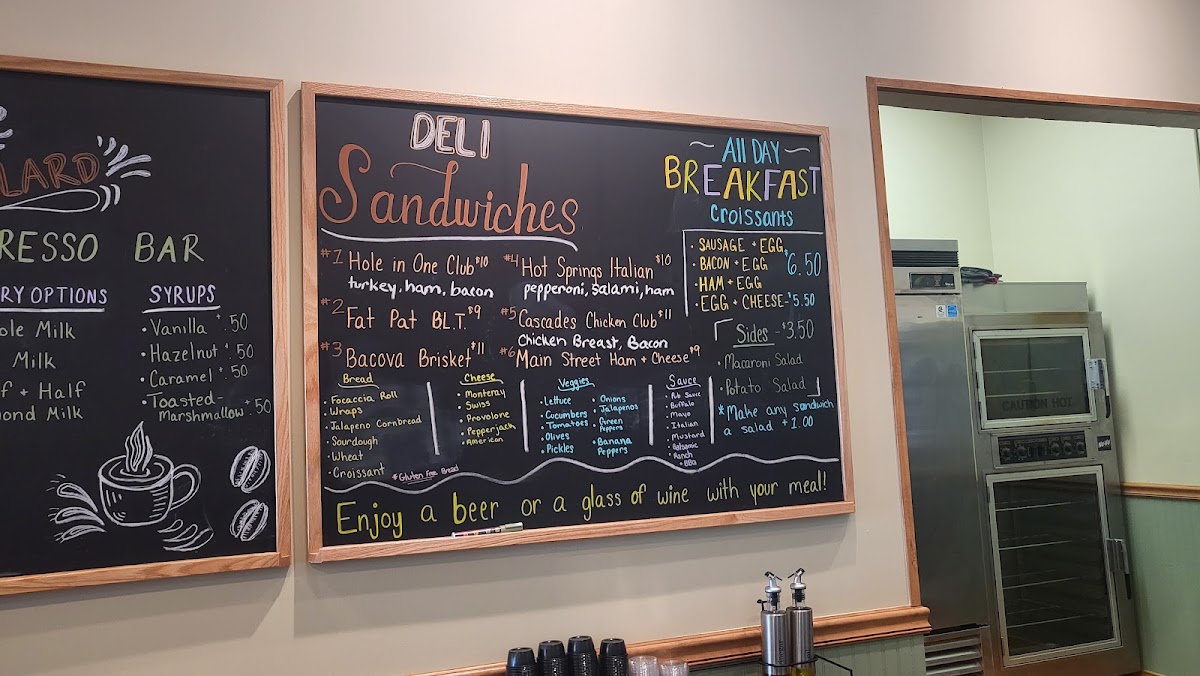 LARD
RESSO BAR
RY OPTIONS
ole Milk
Milk
f + Half
ond Milk
SYRUPS
• Vanilla + .50
• Hazelnut + .50
• Caramel + .50
• Toasted-
Marshmallow + .50
DELI
Sandwiches
#1 Hole in One Club $10
turkey, ham, bacon
#2 Fat Pat B.L.T. $9
#3 Bacova Brisket $11
#4 Hot Springs Italian $10
pepperoni, salami, ham
#5 Cascades Chicken Club $11
Chicken Breast, Bacon
#6 Main Street Ham + Cheese $9
Bread
• Focaccia Roll
• Wraps
• Jalapeno Cornbread
• Sourdough
• Wheat
• Croissant
*Gluten Free Bread
Cheese
• Monteray
• Swiss
• Provolone
• Pepperjack
• American
Veggies
• Lettuce
• Cucumbers
• Tomatoes
• Olives
• Pickles
• Onions
• Jalapenos
• Green
Peppers
• Banana
Peppers
Sauce
• Pub Sauce
• Buffalo
• Mayo
• Italian
• Mustard
• Balsamic
• Ranch
• BBQ
~ All DAY ~
BREAKFAST
Croissants
• SAUSAGE + EGG
• BACON + EGG $6.50
• HAM + EGG
• EGG + CHEESE - $5.50
Sides - $3.50
• Macaroni Salad
• Potato Salad
*Make any sandwich
a salad + 1.00
Enjoy a beer or a glass of wine with your meal!
CAUTION HOT